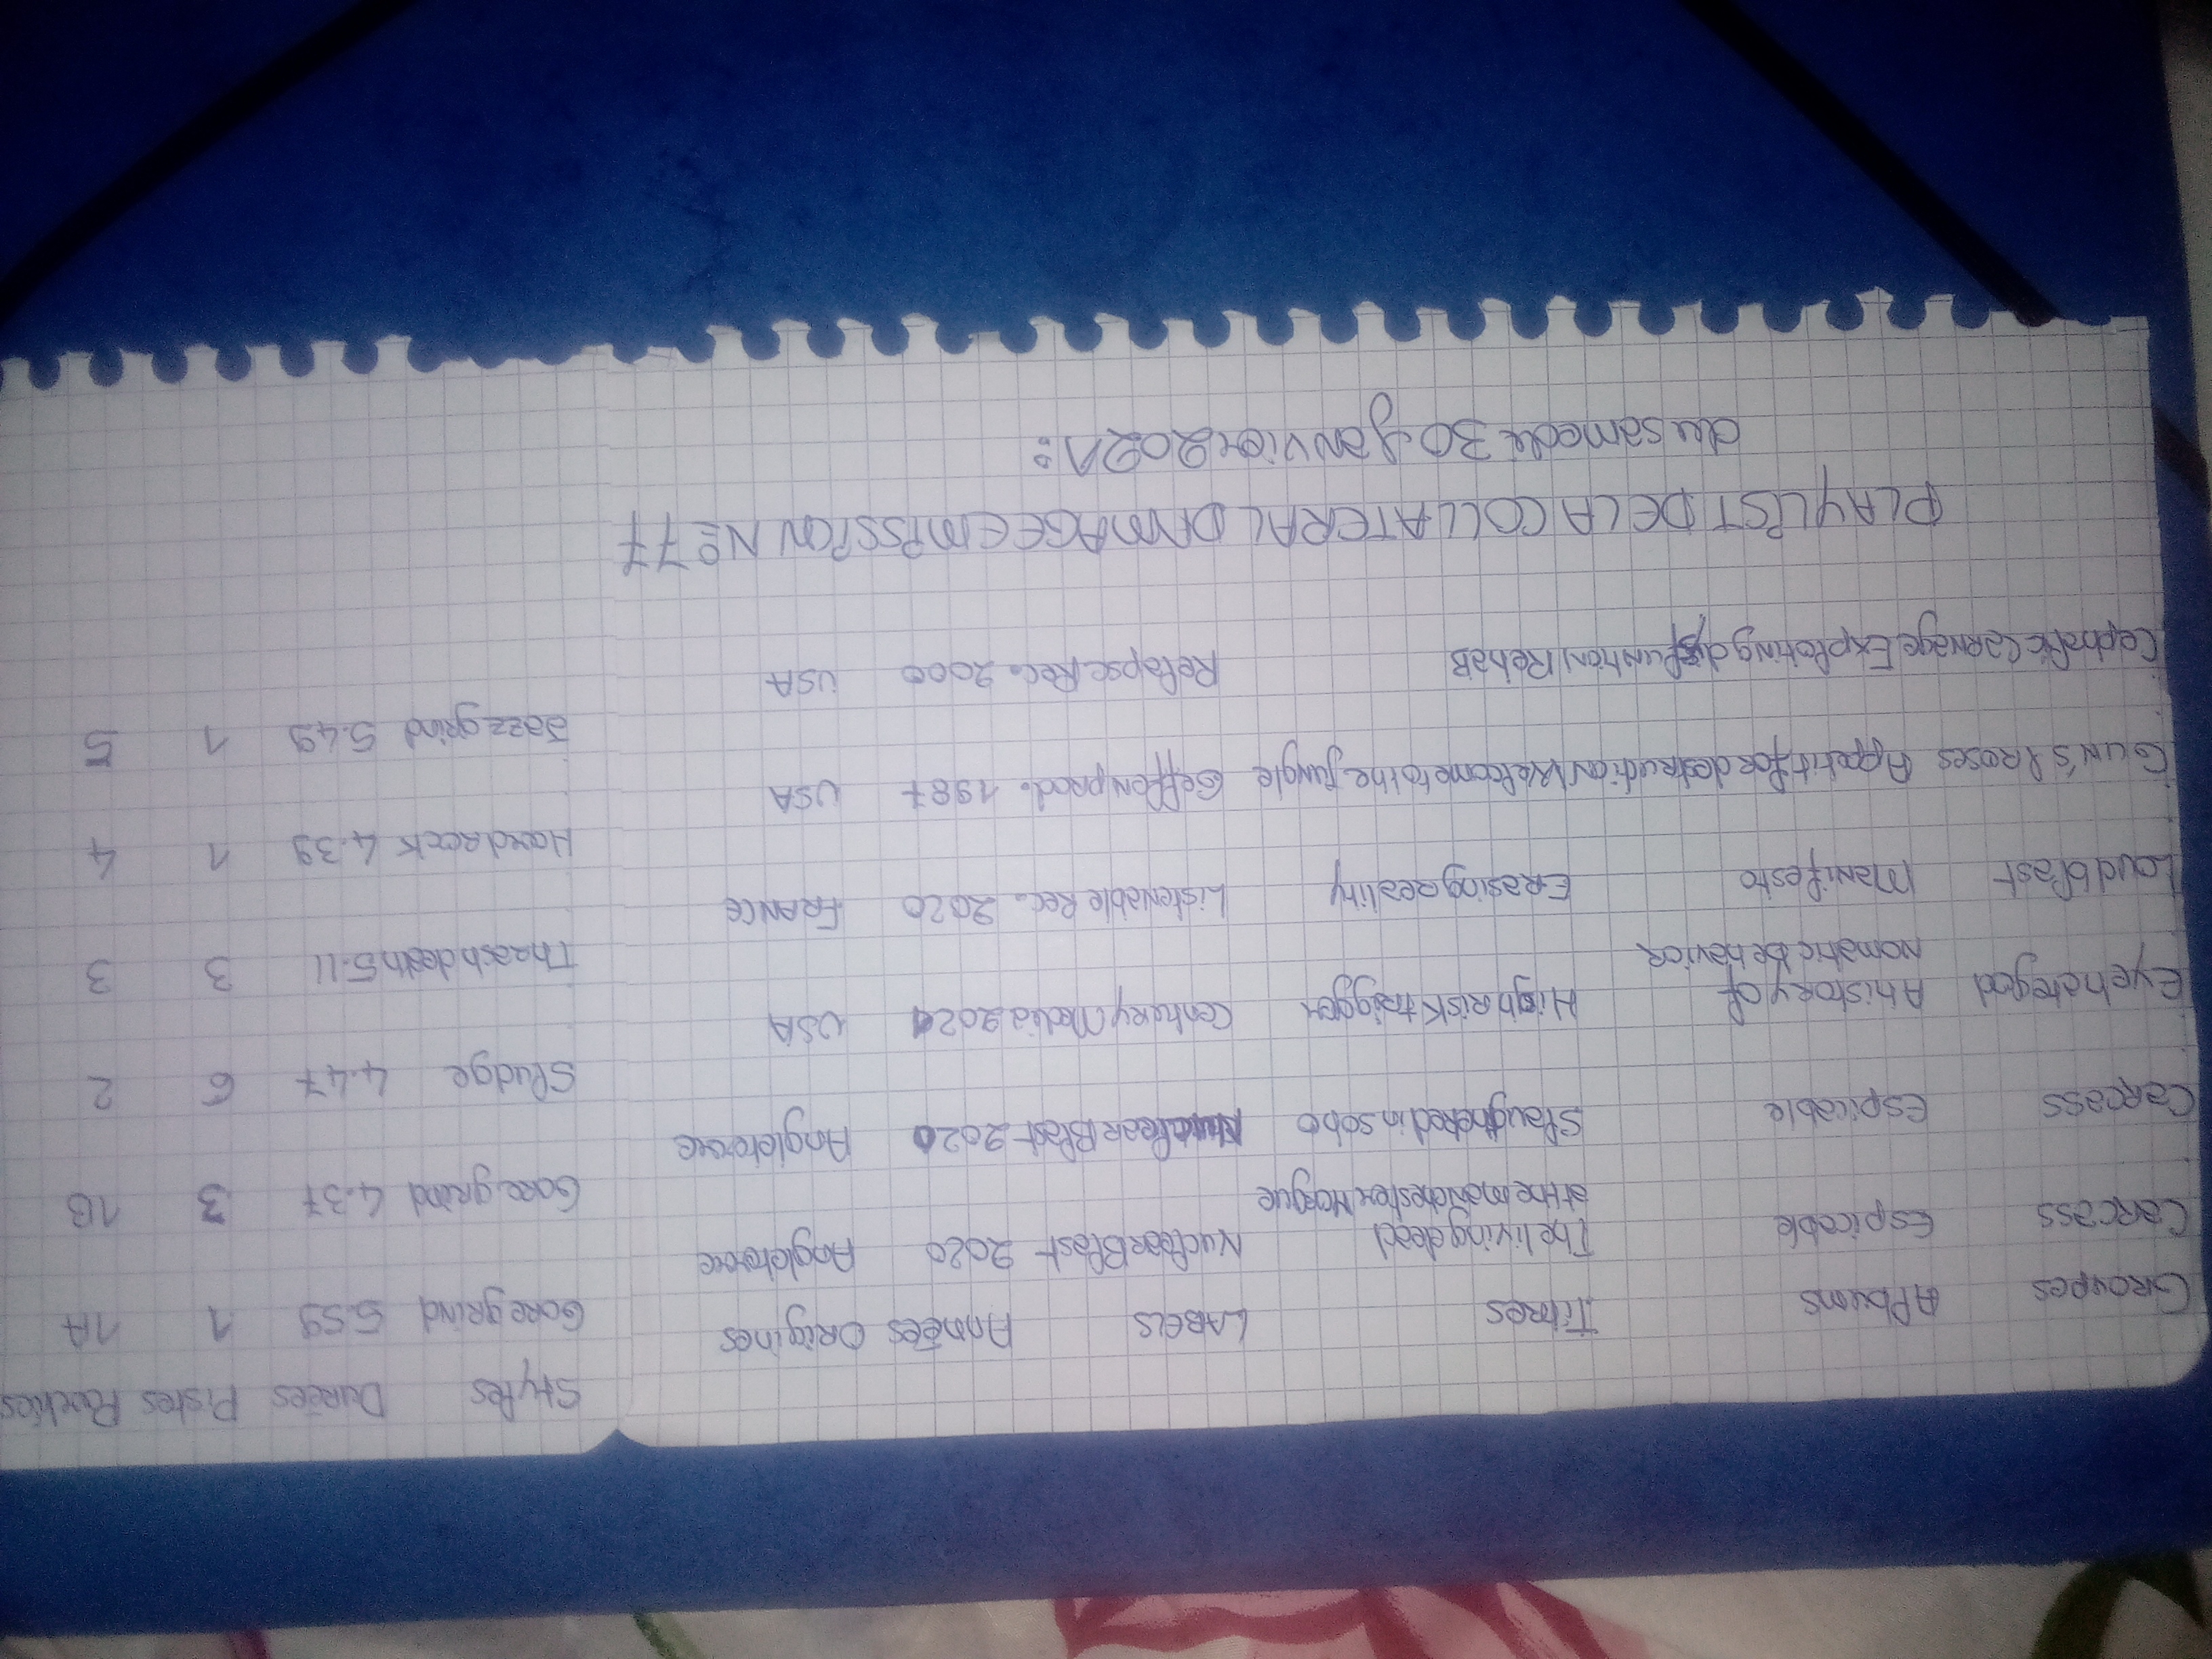 Groupes Albums Titres LABELS Années Origines Styles Durées Pistes Parties
Carcass Espicable The living dead Nuclear Blast 2020 Angleterre Goregrind 5.59 1 1A
at the manchester Morgue
Carcass Espicable Slaughtered in soho Nuclear Blast 2020 Angleterre Goregrind 4.37 3 1B
Eyehategod A history of High Risk trigger Century Media 2021 USA Sludge 4.47 6 2
Nomatic behavior
Loudblast Manifesto Erasing reality Listenable Rec. 2020 FRANCE Thrash death 5.11 3 3
Gun's & roses Appetit for destruction Welcome to the jungle Geffen prod. 1987 USA Hard rock 4.39 1 4
Cephalic Carnage Exploting dysfunction Rehab Relapse Rec. 2000 USA Jazz grind 5.49 1 5
PLAYLIST DE LA COLLATERAL DAMAGE EMISSION N° 77
du samedi 30 janvier 2021: